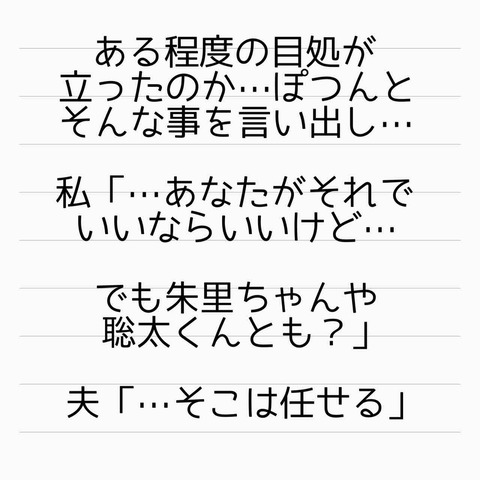 ある程度の目処が
立ったのか…ぽつんと
そんな事を言い出し…
私「…あなたがそれで
いいならいいけど…
でも朱里ちゃんや
聡太くんとも？」
夫「…そこは任せる」